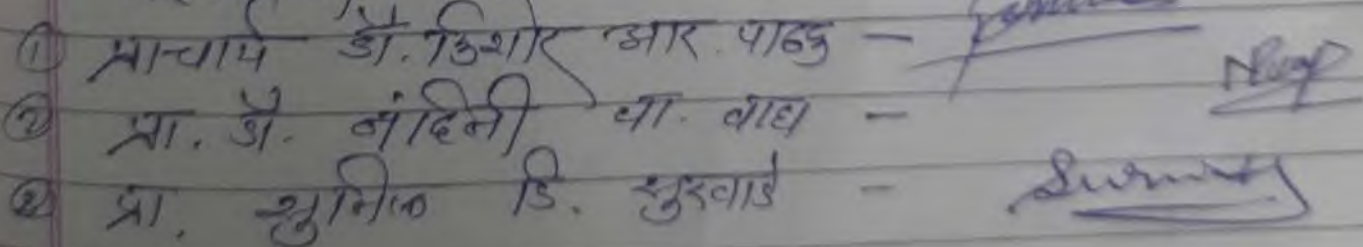 ① प्राचार्य डॉ. किशोर आर. पाठक -
② प्रा. डॉ. नंदिनी या. वाघ -
③ प्रा. सुनिल डि. सुरवाडे -